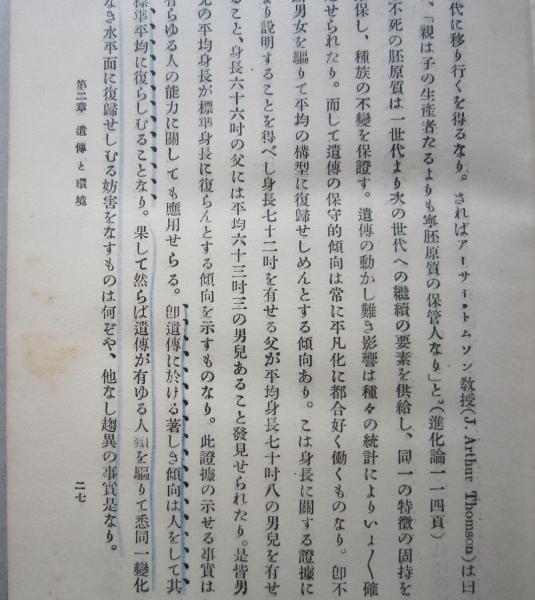 代に移り行くを得るなり。さればアーサー・トムソン教授(J. Arthur Thomson)は曰
、「親は子の生產者たるよりも寧胚原質の保管人なり」と。(進化論一一四頁)
不死の胚原質は一世代より次の世代への繼續の要素を供給し、同一の特徵の固持を
保し、種族の不變を保證す。遺傳の動かし難き影響は種々の統計によりいよ〱確
せられたり。而して遺傳の保守的傾向は常に平凡化に都合好く働くものなり。卽不
男女を驅りて平均の構型に復歸せしめんとする傾向あり。こは身長に關する證據に
り說明することを得べし身長七十二吋を有せる父が平均身長七十吋八の男兒を有せ
ること、身長六十六吋の父には平均六十三吋三の男兒あること發見せられたり。是皆男
兒の平均身長が標準身長に復らんとする傾向を示すものなり。此證據の示せる事實は
有らゆる人の能力に關しても應用せらる。卽遺傳に於ける著しき傾向は人をして其
標準平均に復らしむることなり。果して然らば遺傳が有ゆる人類を驅りて悉同一變化
なき水平面に復歸せしむる妨害をなすものは何ぞや、他なし趨異の事實是なり。
第二章 遺傳と環境
二七